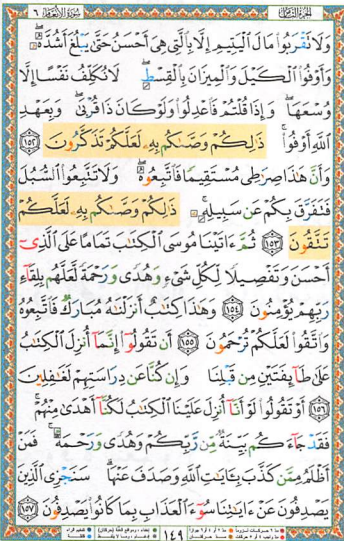 الجزء الثامن
سورة الأنعام ٦
وَلَا تَقْرَبُوا۟ مَالَ ٱلْيَتِيمِ إِلَّا بِٱلَّتِى هِىَ أَحْسَنُ حَتَّىٰ يَبْلُغَ أَشُدَّهُۥ
وَأَوْفُوا۟ ٱلْكَيْلَ وَٱلْمِيزَانَ بِٱلْقِسْطِ لَا نُكَلِّفُ نَفْسًا إِلَّا
وُسْعَهَا وَإِذَا قُلْتُمْ فَٱعْدِلُوا۟ وَلَوْ كَانَ ذَا قُرْبَىٰ وَبِعَهْدِ
ٱللَّهِ أَوْفُوا۟ ذَٰلِكُمْ وَصَّىٰكُم بِهِۦ لَعَلَّكُمْ تَذَكَّرُونَ ١٥٢
وَأَنَّ هَٰذَا صِرَٰطِى مُسْتَقِيمًا فَٱتَّبِعُوهُ وَلَا تَتَّبِعُوا۟ ٱلسُّبُلَ
فَتَفَرَّقَ بِكُمْ عَن سَبِيلِهِۦ ذَٰلِكُمْ وَصَّىٰكُم بِهِۦ لَعَلَّكُمْ
تَتَّقُونَ ١٥٣ ثُمَّ ءَاتَيْنَا مُوسَى ٱلْكِتَٰبَ تَمَامًا عَلَى ٱلَّذِىٓ
أَحْسَنَ وَتَفْصِيلًا لِّكُلِّ شَىْءٍ وَهُدًى وَرَحْمَةً لَّعَلَّهُم بِلِقَآءِ
رَبِّهِمْ يُؤْمِنُونَ ١٥٤ وَهَٰذَا كِتَٰبٌ أَنزَلْنَٰهُ مُبَارَكٌ فَٱتَّبِعُوهُ
وَٱتَّقُوا۟ لَعَلَّكُمْ تُرْحَمُونَ ١٥٥ أَن تَقُولُوٓا۟ إِنَّمَآ أُنزِلَ ٱلْكِتَٰبُ
عَلَىٰ طَآئِفَتَيْنِ مِن قَبْلِنَا وَإِن كُنَّا عَن دِرَاسَتِهِمْ لَغَٰفِلِينَ
١٥٦ أَوْ تَقُولُوا۟ لَوْ أَنَّآ أُنزِلَ عَلَيْنَا ٱلْكِتَٰبُ لَكُنَّآ أَهْدَىٰ مِنْهُمْ
فَقَدْ جَآءَكُم بَيِّنَةٌ مِّن رَّبِّكُمْ وَهُدًى وَرَحْمَةٌ فَمَنْ
أَظْلَمُ مِمَّن كَذَّبَ بِـَٔايَٰتِ ٱللَّهِ وَصَدَفَ عَنْهَا سَنَجْزِى ٱلَّذِينَ
يَصْدِفُونَ عَنْ ءَايَٰتِنَا سُوٓءَ ٱلْعَذَابِ بِمَا كَانُوا۟ يَصْدِفُونَ ١٥٧
١٤٩